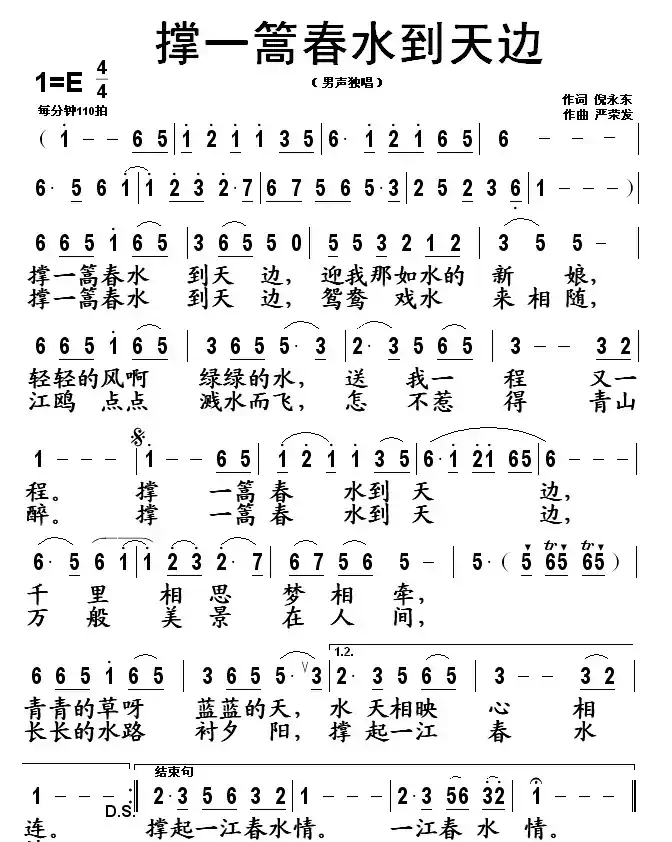 撑一篙春水到天边
1=E 4/4
(男声独唱)
每分钟110拍
作词 倪永东
作曲 严荣发
( 1 - - 6 5 | 1 2 1 1 3 5 | 6· 1 2 1 6 5 | 6 - - - |
6· 5 6 1 | 1 2 3 2·7 | 6 7 5 6 5·3 | 2 5 2 3 6 | 1 - - - ) |
6 6 5 1 6 5 | 3 6 5 5 0 | 5 5 3 2 1 2 | 3 5 5 - |
撑一篙春水 到天 边, 迎我那如水的 新 娘,
撑一篙春水 到天 边, 鸳鸯 戏水 来 相 随,
6 6 5 1 6 5 | 3 6 5 5· 3 | 2· 3 5 6 5 | 3 - - 3 2 |
轻轻的风啊 绿绿的水, 送 我一 程 又一
江鸥 点点 溅水而飞, 怎 不惹 得 青山
1 - - - | 1 - - 6 5 | 1 2 1 1 3 5 | 6·1 21 65 | 6 - - - |
程。 撑 一篙 春 水到 天 边,
醉。 撑 一篙 春 水到 天 边,
6· 5 6 1 | 1 2 3 2· 7 | 6 7 5 6 5 - | 5· ( 5 65 65 ) |
千 里 相 思 梦 相 牵,
万 般 美 景 在 人 间,
1.2.
6 6 5 1 6 5 | 3 6 5 5· 3 | 2· 3 5 6 5 | 3 - - 3 2 |
青青的草呀 蓝蓝的天, 水 天相映 心 相
长长的水路 衬夕 阳, 撑 起一江 春 水
结束句
1 - - - :| 2·3 5 6 3 2 | 1 - - - | 2·3 56 32 | 1 - - - |
D.S.
连。 撑起一江春水情。 一江春 水 情。